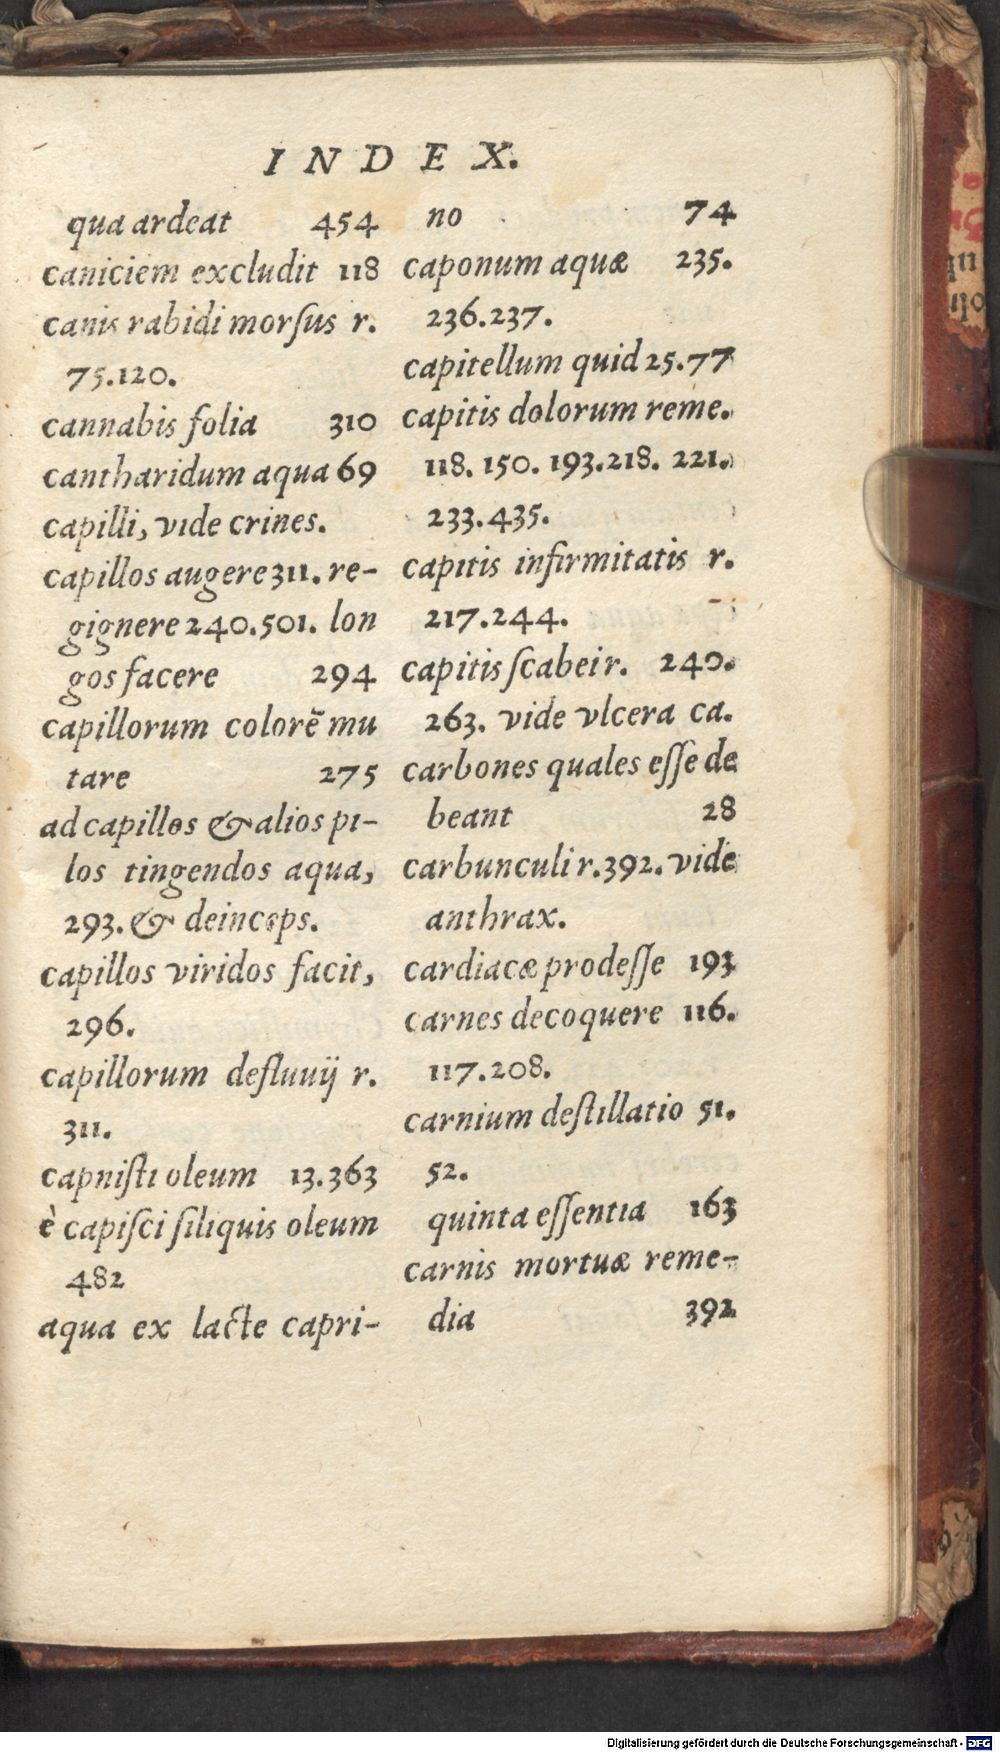 INDEX.
qua ardeat 454
caniciem excludit 118
canis rabidi morſus r.
75.120.
cannabis folia 310
cantharidum aqua 69
capilli, vide crines.
capillos augere 311. re-
gignere 240.501. lon
gos facere 294
capillorum colorē mu
tare 275
ad capillos & alios pi-
los tingendos aqua,
293. & deinceps.
capillos viridos facit,
296.
capillorum defluuij r.
311.
capniſti oleum 13.363
è capiſci ſiliquis oleum
482
aqua ex lacte capri-
no 74
caponum aquæ 235.
236.237.
capitellum quid 25.77
capitis dolorum reme.
118. 150. 193.218. 221.
233.435.
capitis infirmitatis r.
217.244.
capitis ſcabei r. 240.
263. vide vlcera ca.
carbones quales eſſe de
beant 28
carbunculi r.392. vide
anthrax.
cardiacæ prodeſſe 193
carnes decoquere 116.
117.208.
carnium deſtillatio 51.
52.
quinta eſſentia 163
carnis mortuæ reme-
dia 392
Digitalisierung gefördert durch die Deutsche Forschungsgemeinschaft - DFG